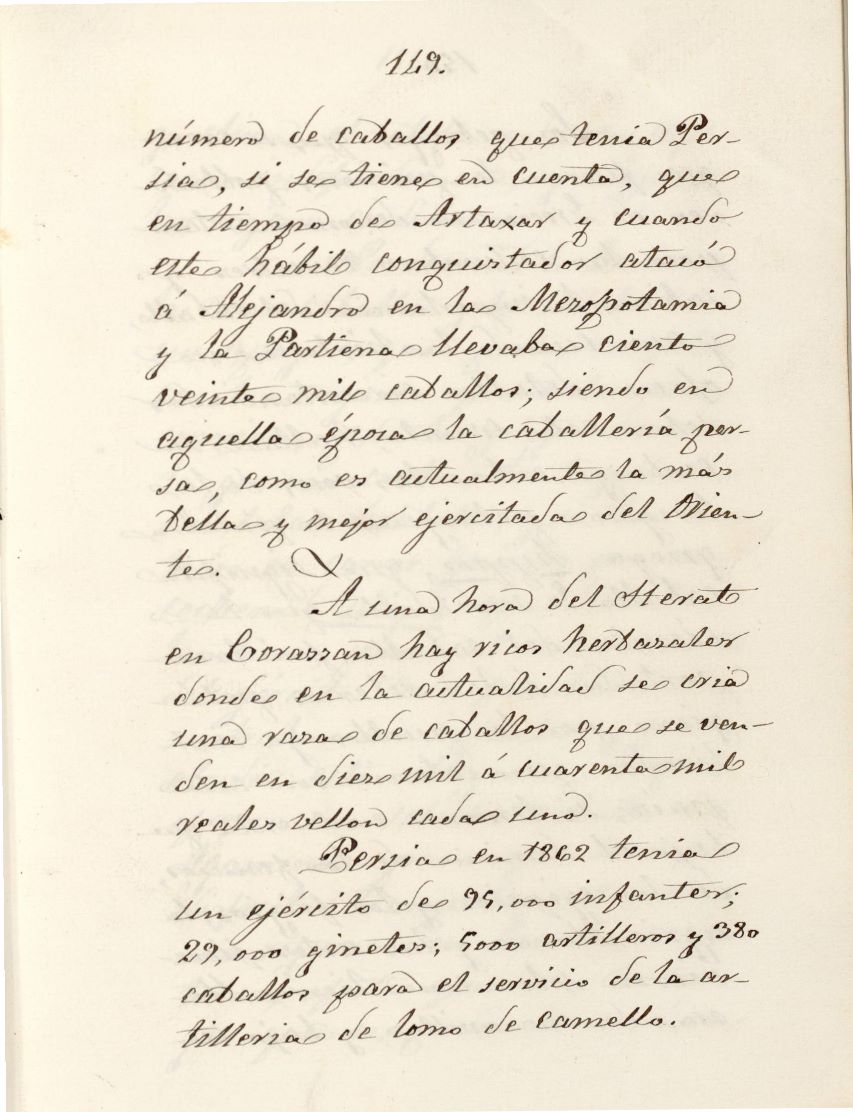 149.
número de caballos que tenia Per-
sia, si se tiene en cuenta, que
en tiempo de Artaxar y cuando
este hábil conquistador atacó
á Alejandro en la Mezopotamia
y la Partiena llevaba ciento
veinte mil caballos; siendo en
aquella época la caballería per-
sa, como es actualmente la más
bella y mejor ejercitada del Orien-
te.
A una hora del Herat
en Corassan hay ricos herbazales
donde en la actualidad se cria
una raza de caballos que se ven-
den en diez mil á cuarenta mil
reales vellon cada uno.
Persia en 1862 tenia
un ejército de 95,000 infantes;
29,000 ginetes; 5000 artilleros y 380
caballos para el servicio de la ar-
tilleria de lomo de camello.